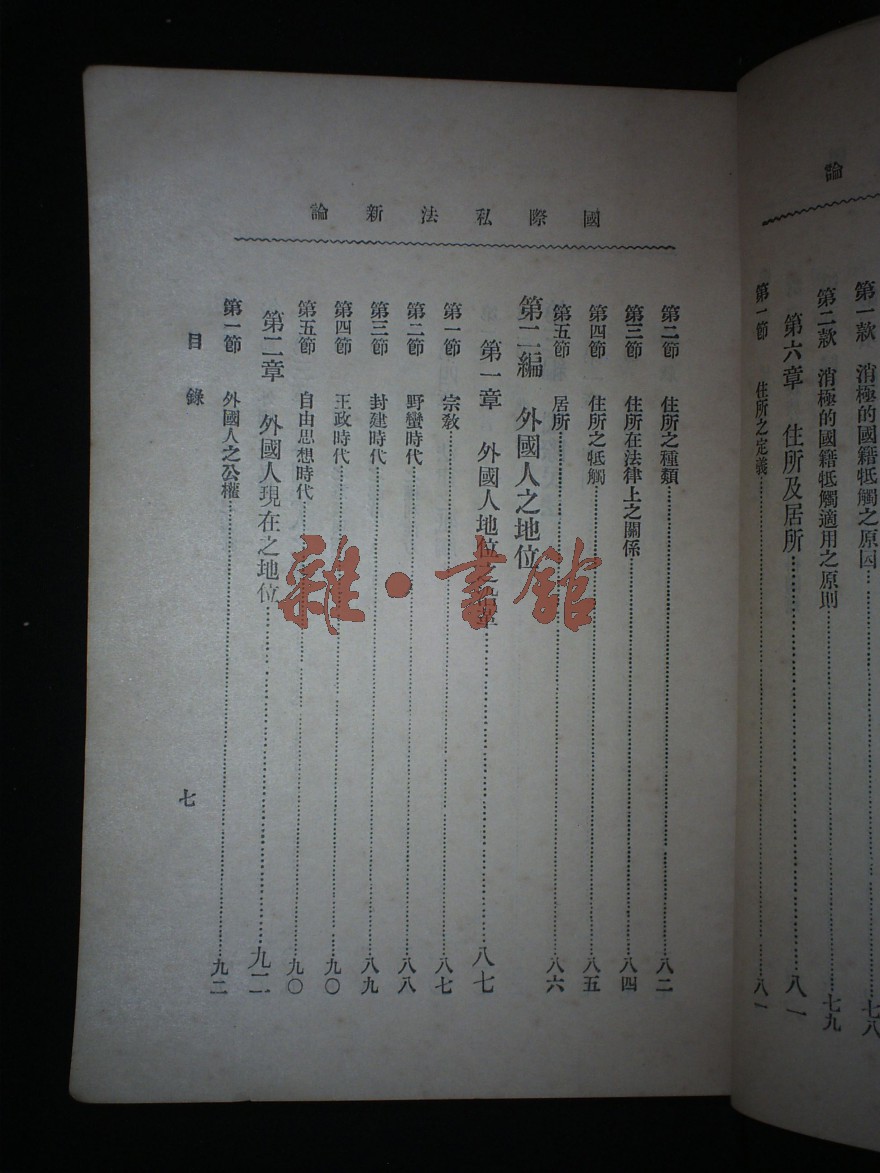 論
第一款 消極的國籍牴觸之原因……七八
第二款 消極的國籍牴觸適用之原則……七九
第六章 住所及居所……八一
第一節 住所之定義……八一
國際私法新論
第二節 住所之種類……八二
第三節 住所在法律上之關係……八四
第四節 住所之牴觸……八五
第五節 居所……八六
第二編 外國人之地位
第一章 外國人地位之沿革……八七
第一節 宗教……八七
第二節 野蠻時代……八八
第三節 封建時代……八九
第四節 王政時代……九〇
第五節 自由思想時代……九〇
第二章 外國人現在之地位……九二
第一節 外國人之公權……九二
目錄
七
雜·書館